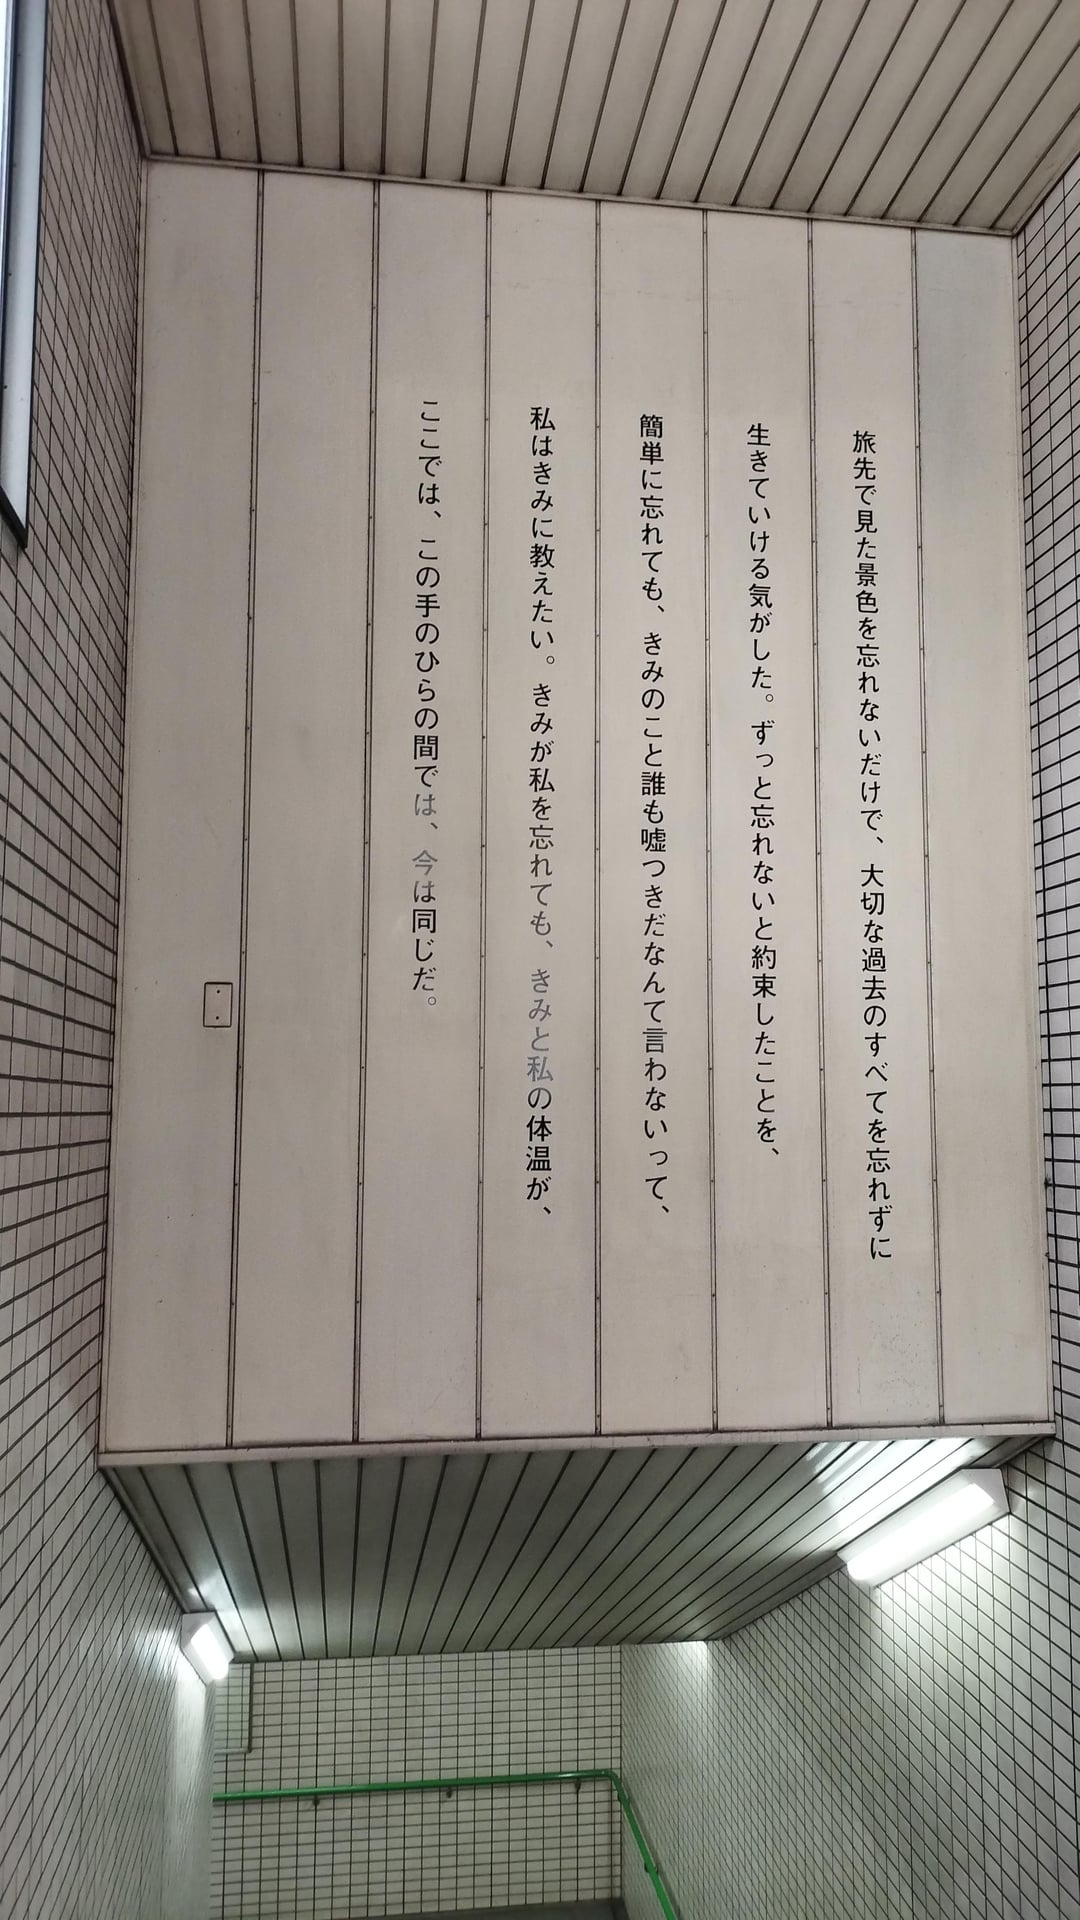 旅先で見た景色を忘れないだけで、大切な過去のすべてを忘れずに
生きていける気がした。ずっと忘れないと約束したことを、
簡単に忘れても、きみのこと誰も嘘つきだなんて言わないって、
私はきみに教えたい。きみが私を忘れても、きみと私の体温が、
ここでは、この手のひらの間では、今は同じだ。